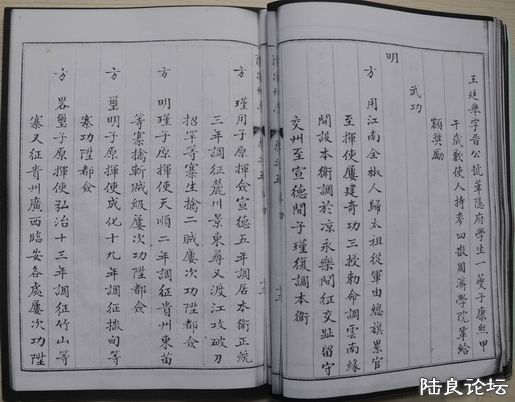 王廷舉字晉公號華隱府學生一夔子康熙甲
午歲歉使人持麥四散周濟學院華給
額獎勵
明
武功
方用江南全椒人歸太祖從軍由總旗累官
至揮使屢建奇功三授勅命調雲南緣
開設本衛調於凉永樂間征交趾留守
交州至宣德間子瑾復調本衛
方瑾用子原揮僉宣德五年調居本衛正統
三年調征麓川景東尋又渡江攻破刀
招罕等寨生擒二賊屢次功陞都僉
方明瑾子原揮使天順二年調征貴州東苗
等寨擒斬賊級屢次功陞都僉
方璽明子原揮使成化十九年調征撒甸等
寨功陞都僉
方畧璽子原揮使弘治十三年調征竹山等
寨又征貴州廣西臨安各處屢次功陞
陆良论坛